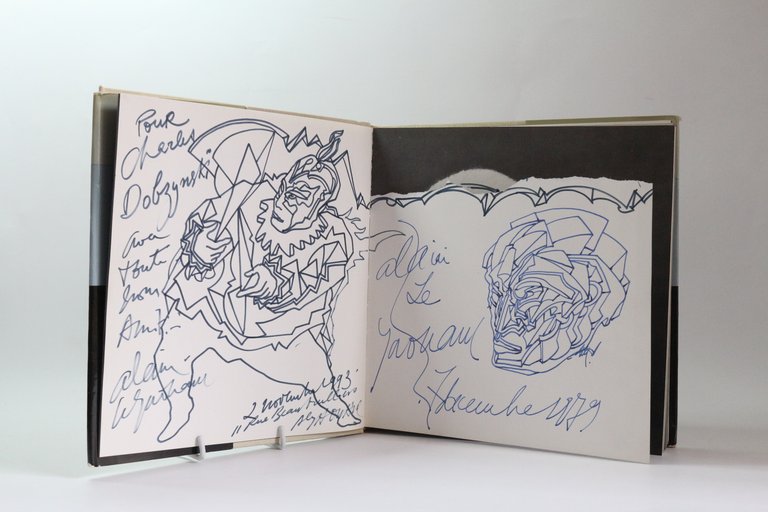 Pour
Charles
Dobzynski
avec
toute
mon
Amitié
Alain
2 novembre 1993
"Rue Beau
alain
Le
Yaouanc
7 decembre 1979